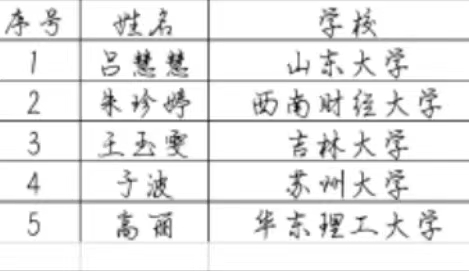 序号 姓名 学校
1 吕慧慧 山东大学
2 朱珍婷 西南财经大学
3 王玉雯 吉林大学
4 于波 苏州大学
5 高丽 华东理工大学